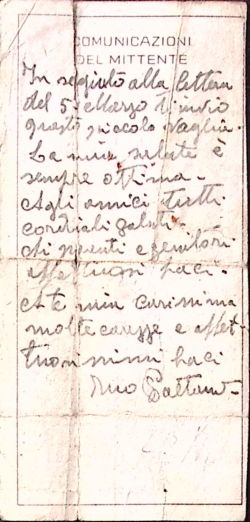 COMUNICAZIONI
DEL MITTENTE
In seguito alla lettera
del 5 Marzo t'invio
questo piccolo vaglia.
La mia salute è
sempre ottima.
Agli amici tutti
cordiali saluti.
Ai parenti e genitori
affettuosi baci.
A te mia carissima
molte carezze e affet-
tuosissimi baci
tuo